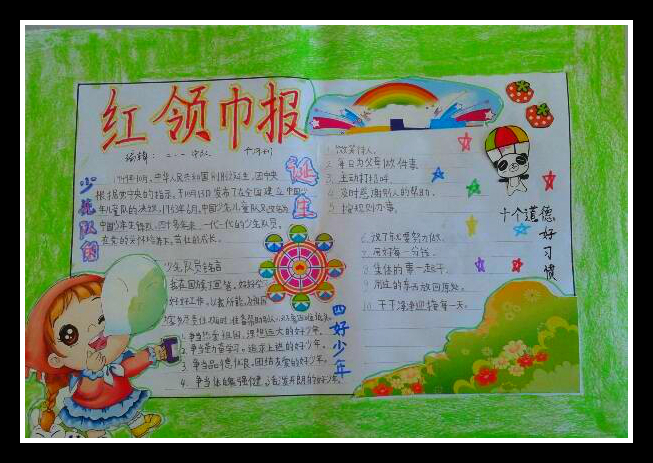 红领巾报
编辑：二.一中队
十月刊
少先队的
诞生
1949年10月，中华人民共和国刚刚诞生，团中央
根据党中央的指示，于10月13日发布了在全国建立中国少
年儿童队的决议。1953年6月，中国少年儿童队又改名为
中国少年先锋队。四十多年来，一代一代的少先队员，
在党的关怀培养下，茁壮的成长。
少先队员
四好少年
1 争当热爱祖国，理想远大的好少年。
2 争当勤奋学习，追求上进的好少年。
3 争当品德优良，团结友爱的好少年。
4 争当体魄强健，活泼开朗的好少年。
十个道德
好习惯
1 微笑待人。
2 每日为父母做件事。
3 主动打招呼。
4 及时感谢别人的帮助。
5 按规则办事。
6 没了就要努力做。
7 过好每一分钱。
8 集体的事一起干。
9 用过的东西放回原处。
10 干干净净迎接每一天。